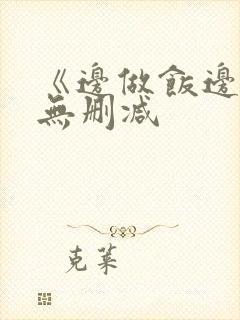 《邊做飯邊
無刪減
克萊